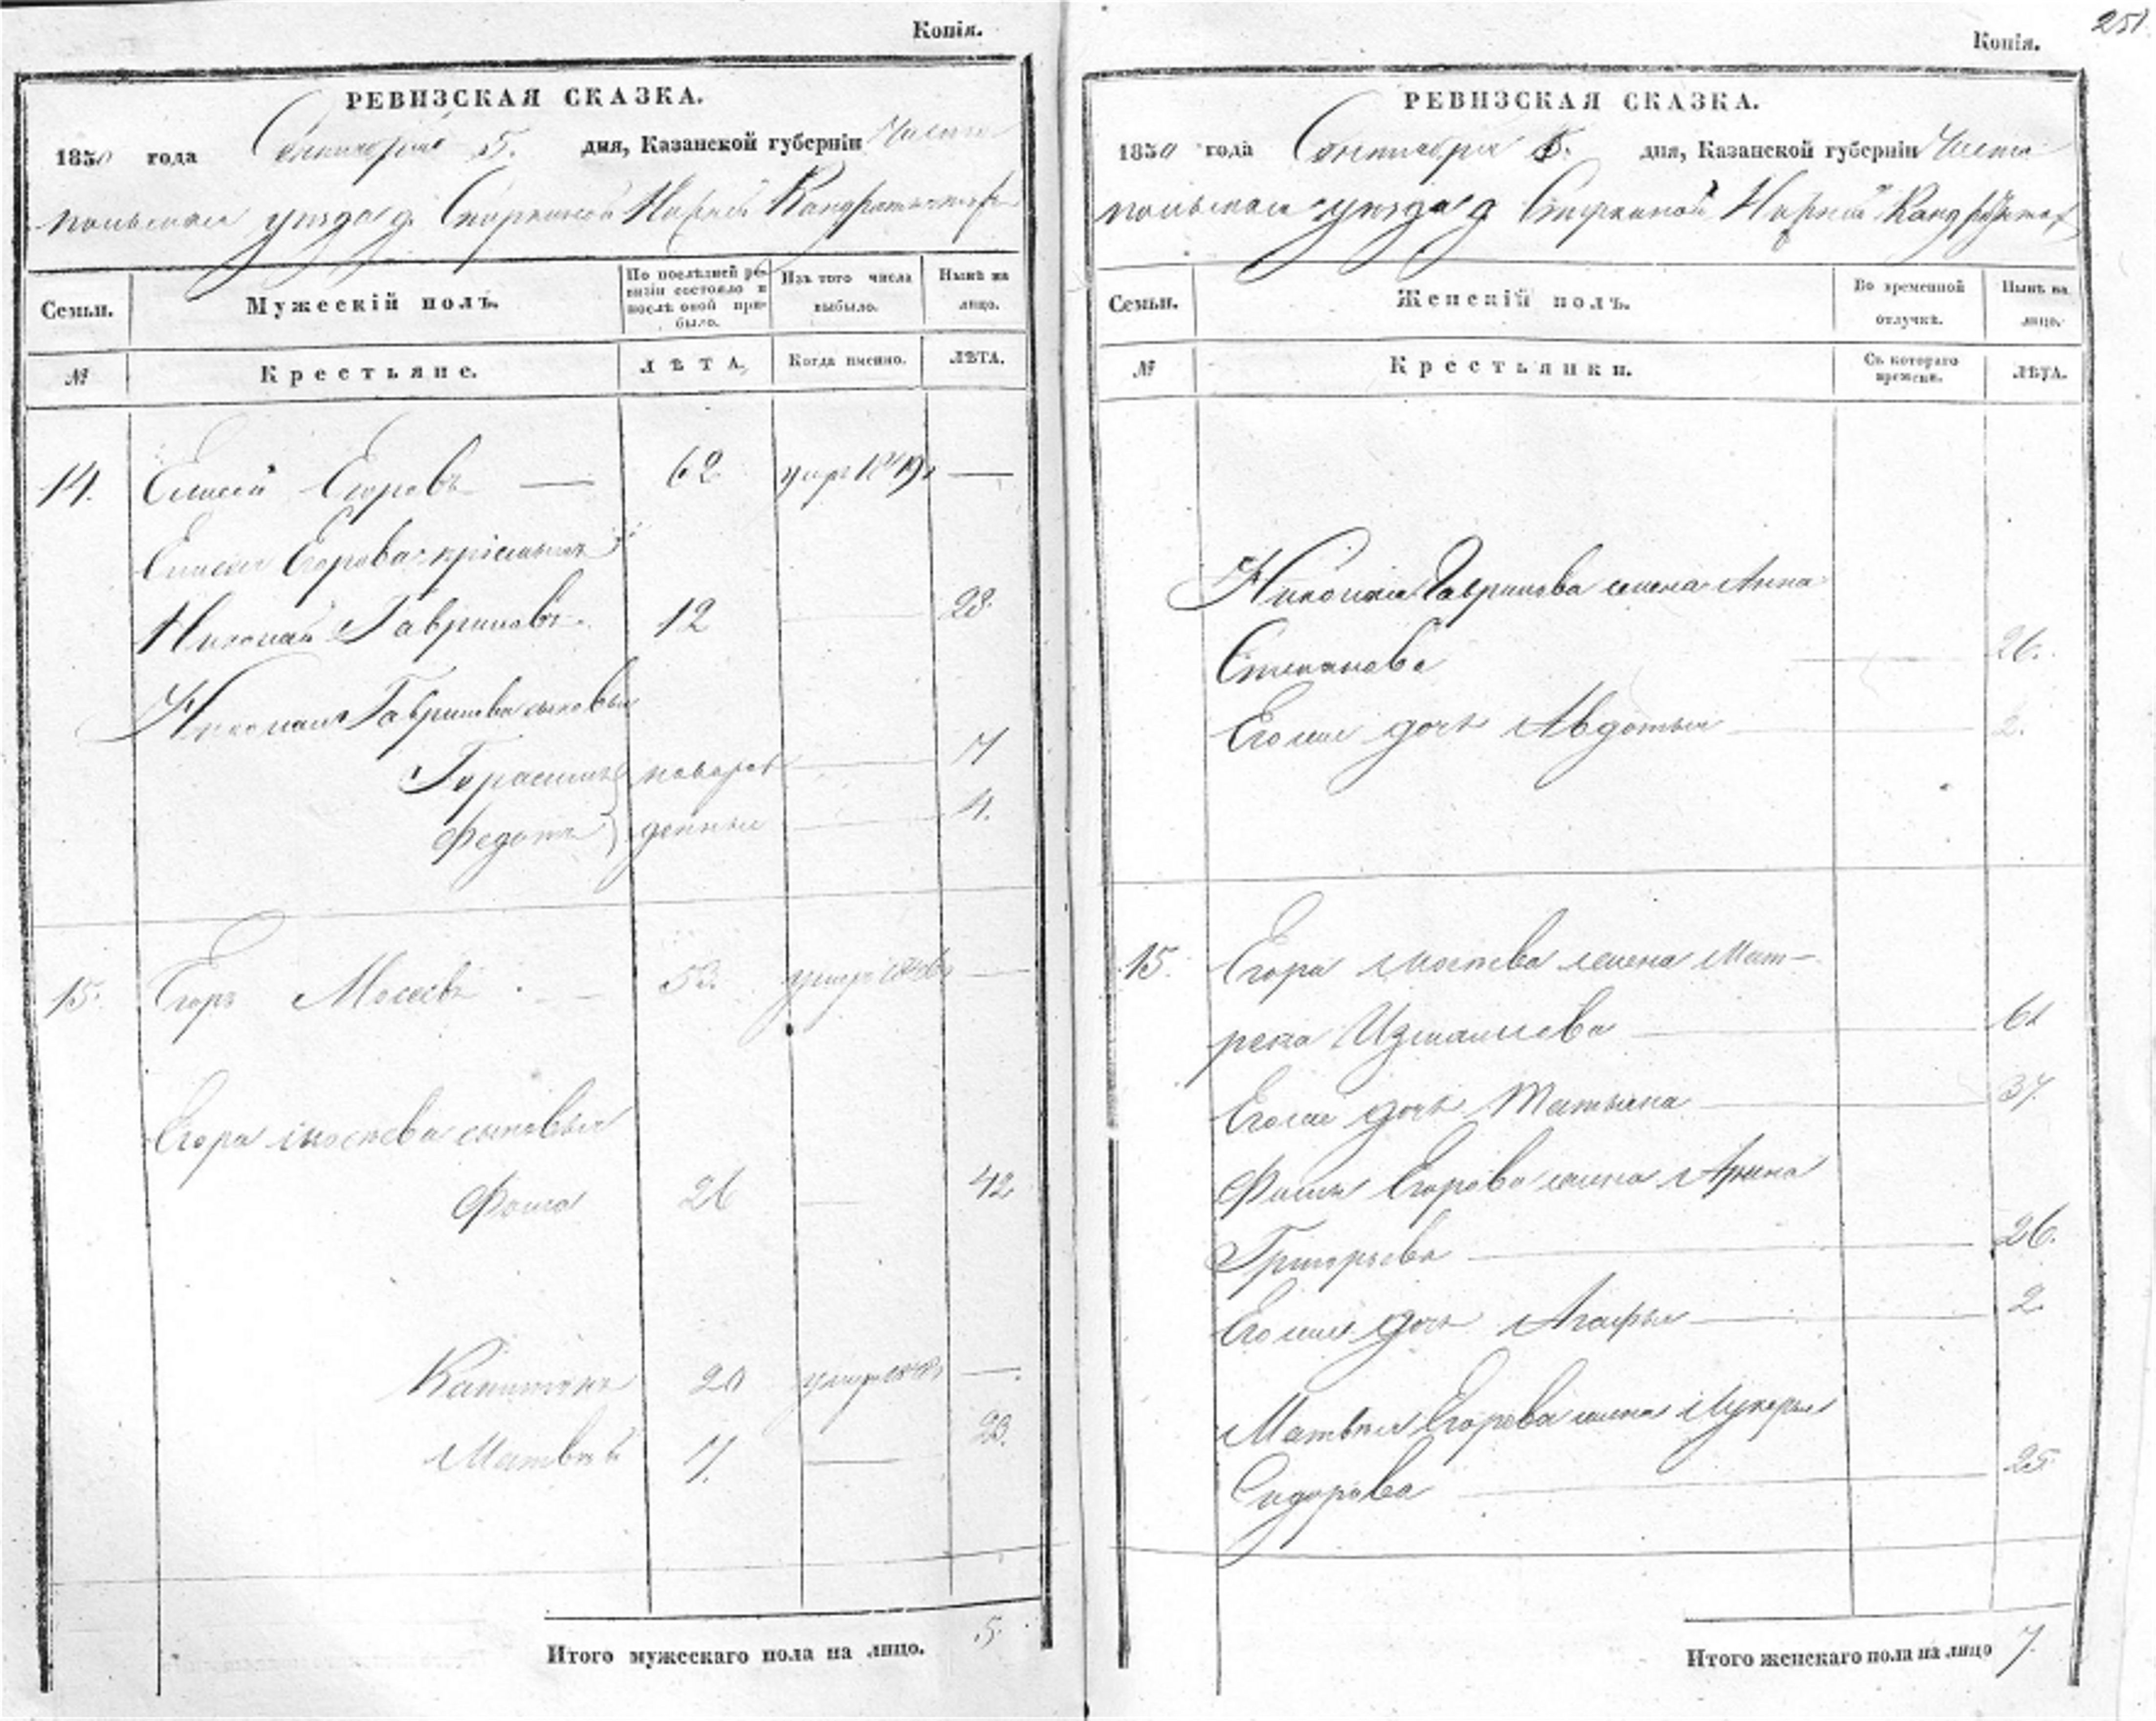 Копія.
РЕВИЗСКАЯ СКАЗКА.
1850 года Сентября 5. дня, Казанской губерніи Чисто
польскаго уѣзда д.
Семьи.
Мужескій полъ.
По послѣдней ре-
визіи состояло и
послѣ оной при-
было.
Изъ того числа
выбыло.
Нынѣ на
лицо.
№
Крестьяне.
ЛѢТА.
Когда именно.
ЛѢТА.
14. Елисей Егоровъ — 62 —
Елисея Егорова
Николай Гавриловъ 12 — 28.
Николая Гаврилова сыновья
Герасимъ } новорож — 7
Федотъ } денные — 4.
15. Егоръ Мосеевъ — 53. —
Егора Мосеева сыновья
Фома 26 — 42
Капитонъ 20 —
Матвей 7. — 23.
Итого мужескаго пола на лицо. 5.
251.
Копія.
РЕВИЗСКАЯ СКАЗКА.
1850 года Сентября 5. дня, Казанской губерніи Чисто
польскаго уѣзда д
Семьи.
Женскій полъ.
Во временной
отлучкѣ.
Нынѣ на
лицо.
№
Крестьянки.
Съ котораго
времени.
ЛѢТА.
Николая Гаврилова жена Анна
Степанова — 26.
Его же дочь Авдотья — 2.
15. Егора Мосеева жена Мат-
рена Измаилова — 61
Его же дочь Татьяна — 37.
Фомы Егорова жена Арина
Григорьева — 26.
Его же дочь Агафья — 2.
Матвея Егорова жена Лукерья
Сидорова — 25.
Итого женскаго пола на лицо 7.